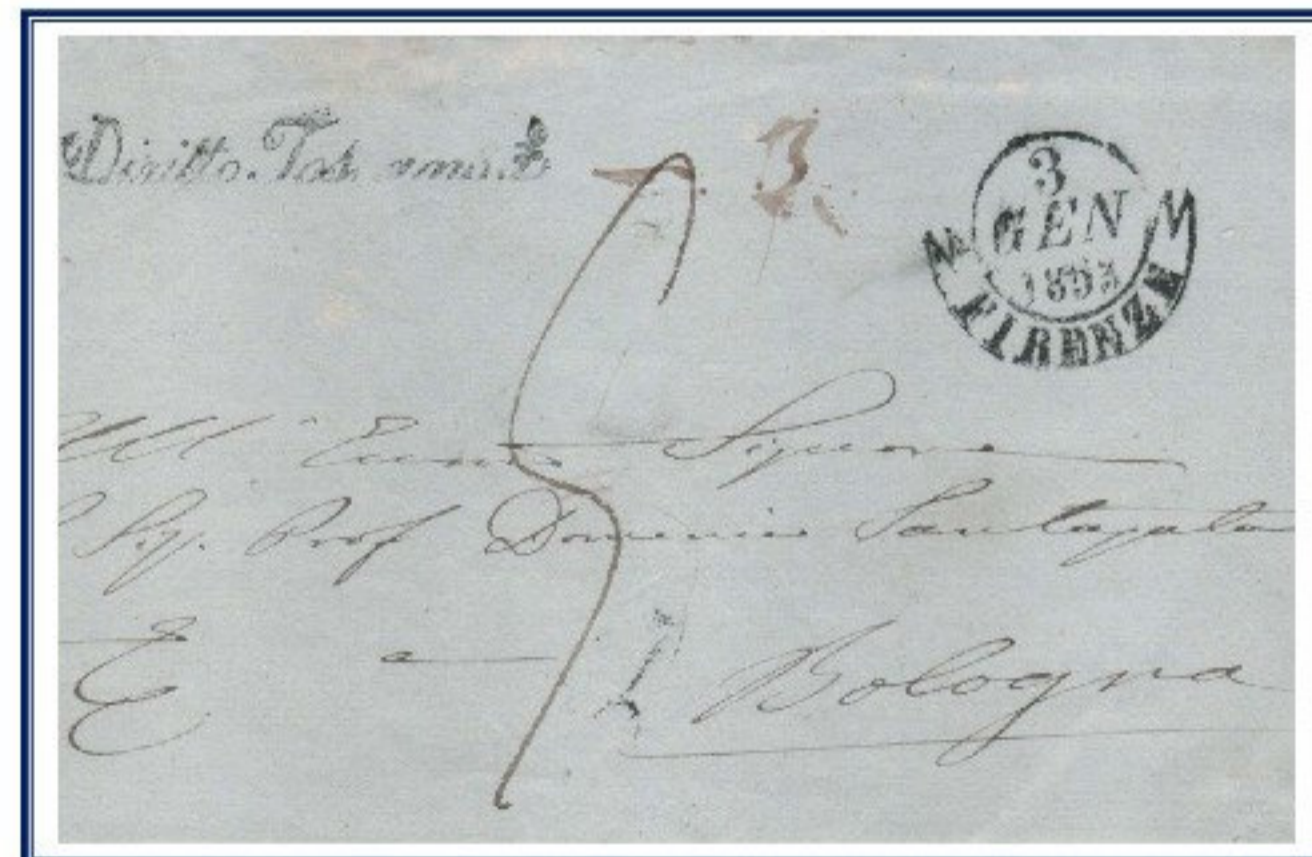 Diritto. Tosc. 
3
GEN
1853
FIRENZE
All' Eccmo Signore
Sig. Prof Domenico Santagata
Bologna